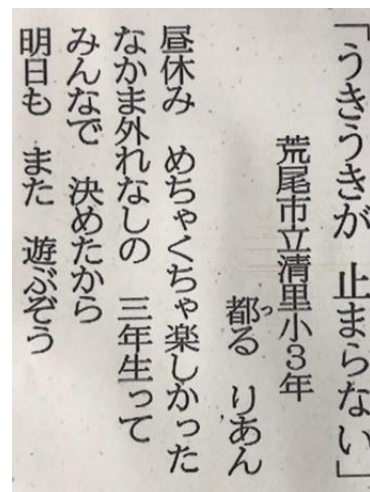 「うきうきが　止まらない」
荒尾市立清里小３年
都る　りあん
っ
昼休み　めちゃくちゃ楽しかった
なかま外れなしの　三年生って
みんなで　決めたから
明日も　また　遊ぶぞう